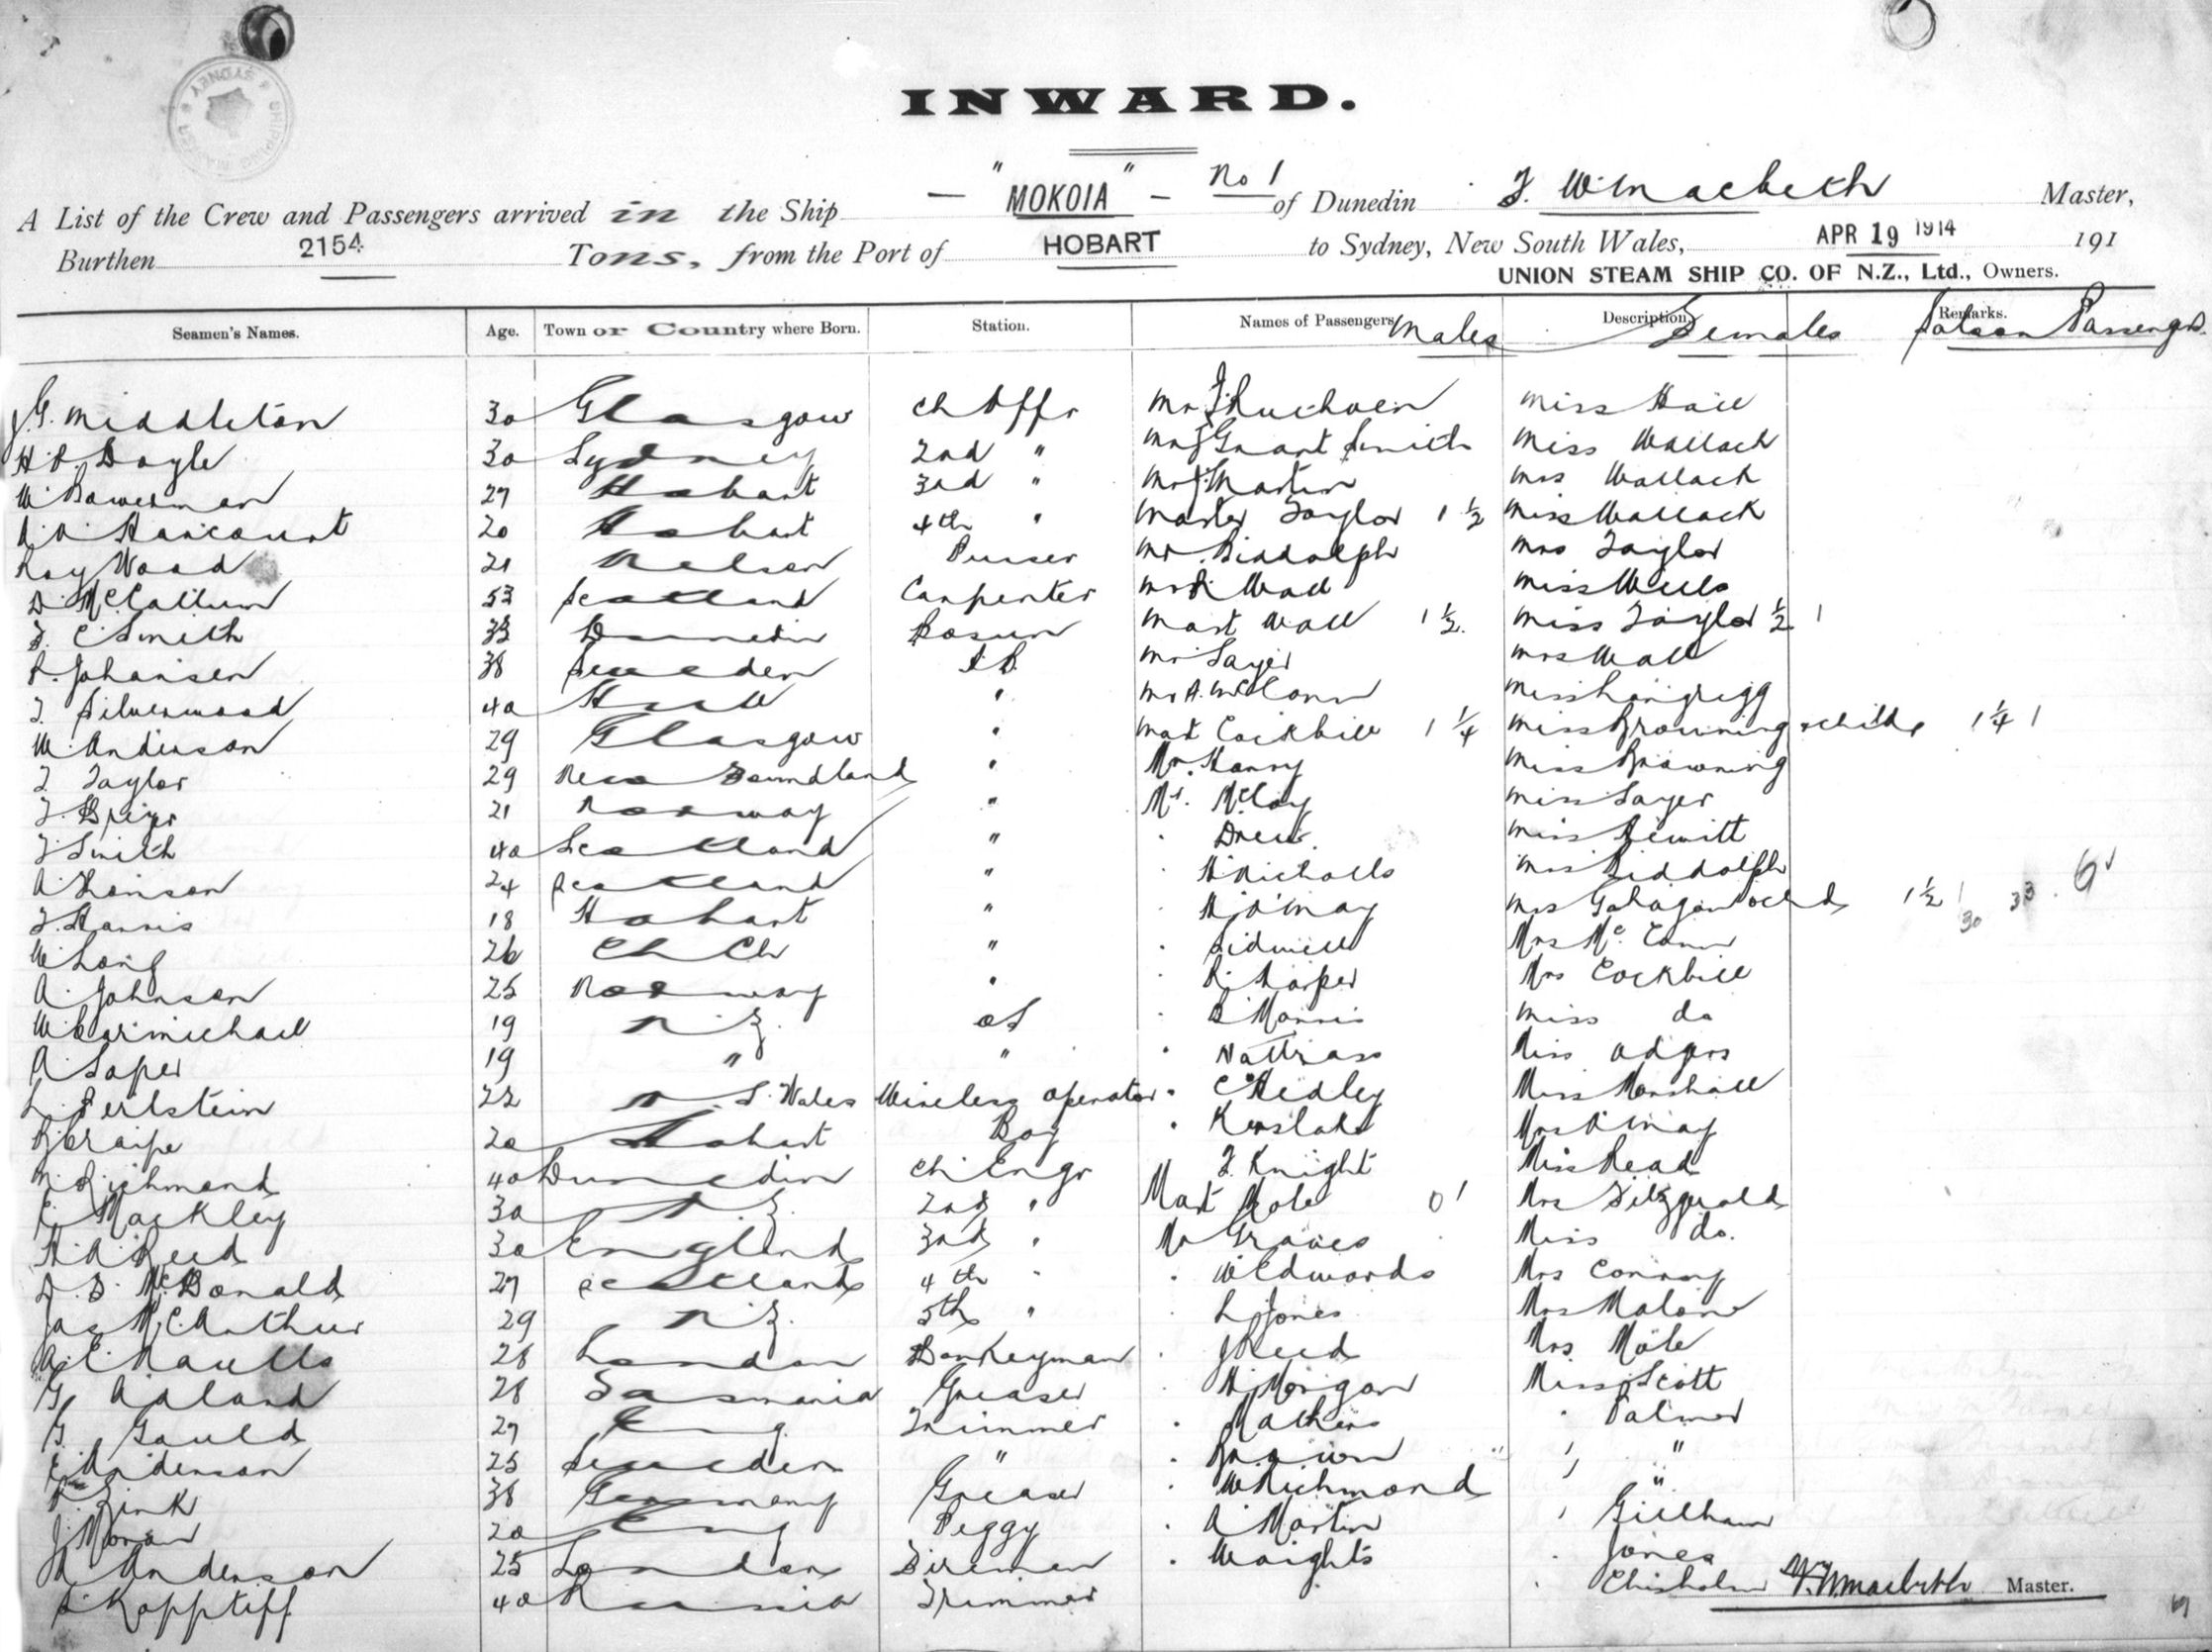 SHIPPING MASTER SYDNEY
INWARD.
A List of the Crew and Passengers arrived in the Ship — "MOKOIA" — No 1 of Dunedin F. W. Macbeth Master,
Burthen 2154 Tons, from the Port of HOBART to Sydney, New South Wales, APR 19 1914 191
UNION STEAM SHIP CO. OF N.Z., Ltd., Owners.
Seamen's Names. Age. Town or Country where Born. Station. Names of Passengers Males Description Females Remarks. Saloon Passengers
J. G. Middleton 30 Glasgow Ch Offr Mr Miss Hall
H. P. Doyle 30 Sydney 2nd " Mr Grant Smith Miss Wallach
W. Bowerman 27 Hobart 3rd " Mr Martin Mrs Wallach
A. A. Harcourt 20 Hobart 4th " Master Taylor 1 ½ Miss Wallack
Roy Wood 21 Nelson Purser Mr Biddolph Mrs Taylor
D. McCallum 53 Scotland Carpenter Mr Wall Miss Wells
F. C Smith 33 Dunedin Bosun Mast Wall 1 ½ Miss Taylor ½ 1
P. Johansen 38 Sweden A B Mr Sayer Mrs Wall
T. Silverwood 40 Hull " Mr A. McConn Miss Longrigg
W. Anderson 29 Glasgow " Mast Cockbill 1 ¼ Miss Browning & child 1 ¼ 1
T. Taylor 29 New Foundland " Mr. Harry Miss Browning
21 Norway " Mr. McCoy Miss Sayer
T Smith 40 Scotland " " Drew Miss Hewitt
A Thomson 24 Scotland " " H Nicholls Mrs Biddolph
T. Harris 18 Hobart " " Mrs Gahagan & child 1 ½ 1 30 33 . 6
W Long 26 Ch Ch " " Sidwell Mrs McConn
A. Johnson 25 Norway " " R. Harper Mrs Cockbill
W Carmichael 19 N. Z. OS " B Morris Miss do
A Soper 19 " " " Wattrass Miss Odgers
L. Perlstein 22 N. S. Wales Wireless Operator " C Hedley Miss Marshall
20 Hobart Boy " Kerslake Mrs
Richmond 40 Dunedin Ch Engr T. Knight Miss Read
E. Mackley 30 N. Z. 2nd " Mast Mole 0 1 Mrs Fitzgerald
H. A. Reed 30 England 3rd " Mr Graves Miss do.
D. S. McDonald 27 Scotland 4th " " W Edwards Mrs Conway
Jas McArthur 29 N Z. 5th " " L Jones Mrs Malone
A. E. Naulls 28 London Donkeyman " J Reed Mrs Mole
G. Adland 28 Tasmania Greaser " H Morgan Miss Scott
G. Gould 27 Eng. Trimmer " Mathers " Palmer
E Anderson 25 Sweden " " Brown " "
P. Zink 38 Germany Greaser " W Richmond " "
J. Moran 20 Eng Peggy " A Martin " Gillham
A Anderson 25 London Fireman " Waights " Jones
S Kopptiff 40 Russia Trimmer " Chisholm F. W. Macbeth Master.